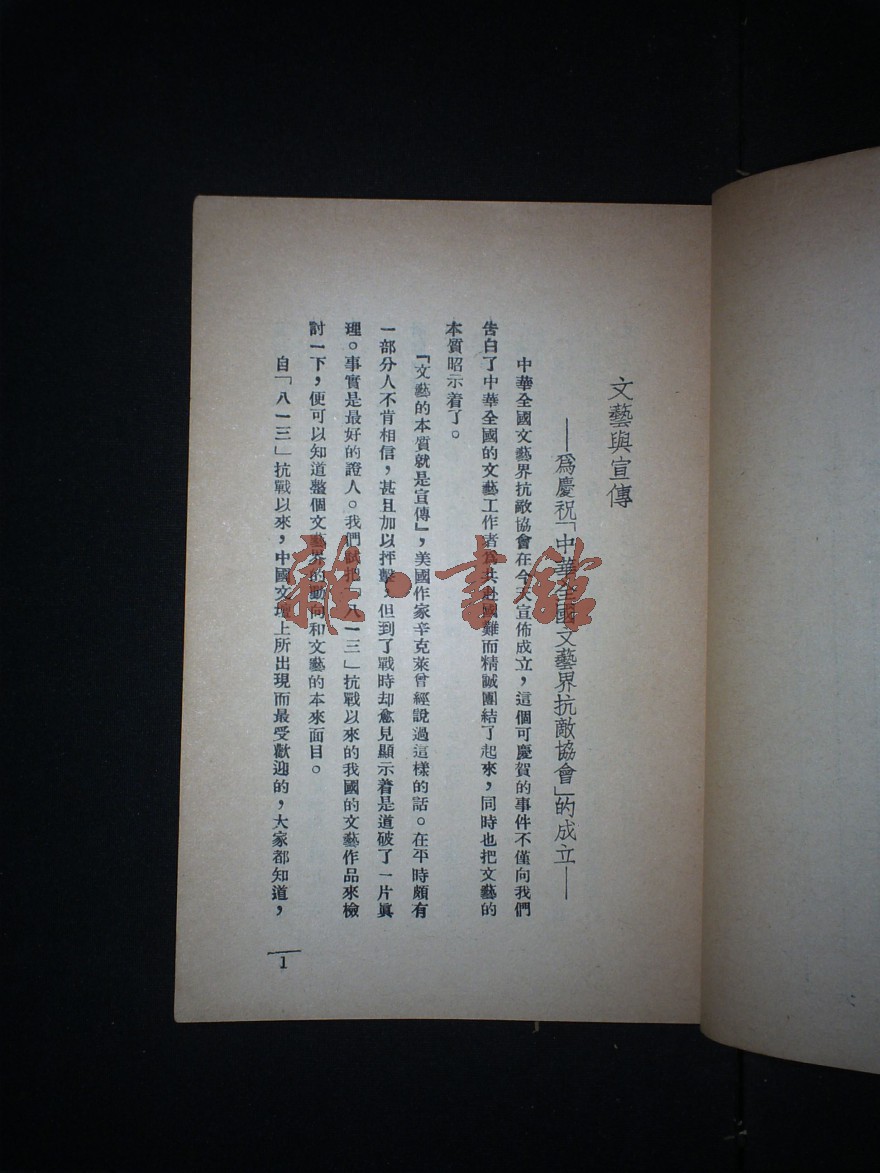 文藝與宣傳
——爲慶祝「中華全國文藝界抗敵協會」的成立——
中華全國文藝界抗敵協會在今天宣佈成立，這個可慶賀的事件不僅向我們
告白了中華全國的文藝工作者爲共赴國難而精誠團結了起來，同時也把文藝的
本質昭示着了。
「文藝的本質就是宣傳」，美國作家辛克萊曾經說過這樣的話。在平時頗有
一部分人不肯相信，甚且加以抨擊，但到了戰時却愈見顯示着是道破了一片眞
理。事實是最好的證人。我們試把「八一三」抗戰以來的我國的文藝作品來檢
討一下，便可以知道整個文藝界的動向和文藝的本來面目。
自「八一三」抗戰以來，中國文壇上所出現而最受歡迎的，大家都知道，
1
雜·書館